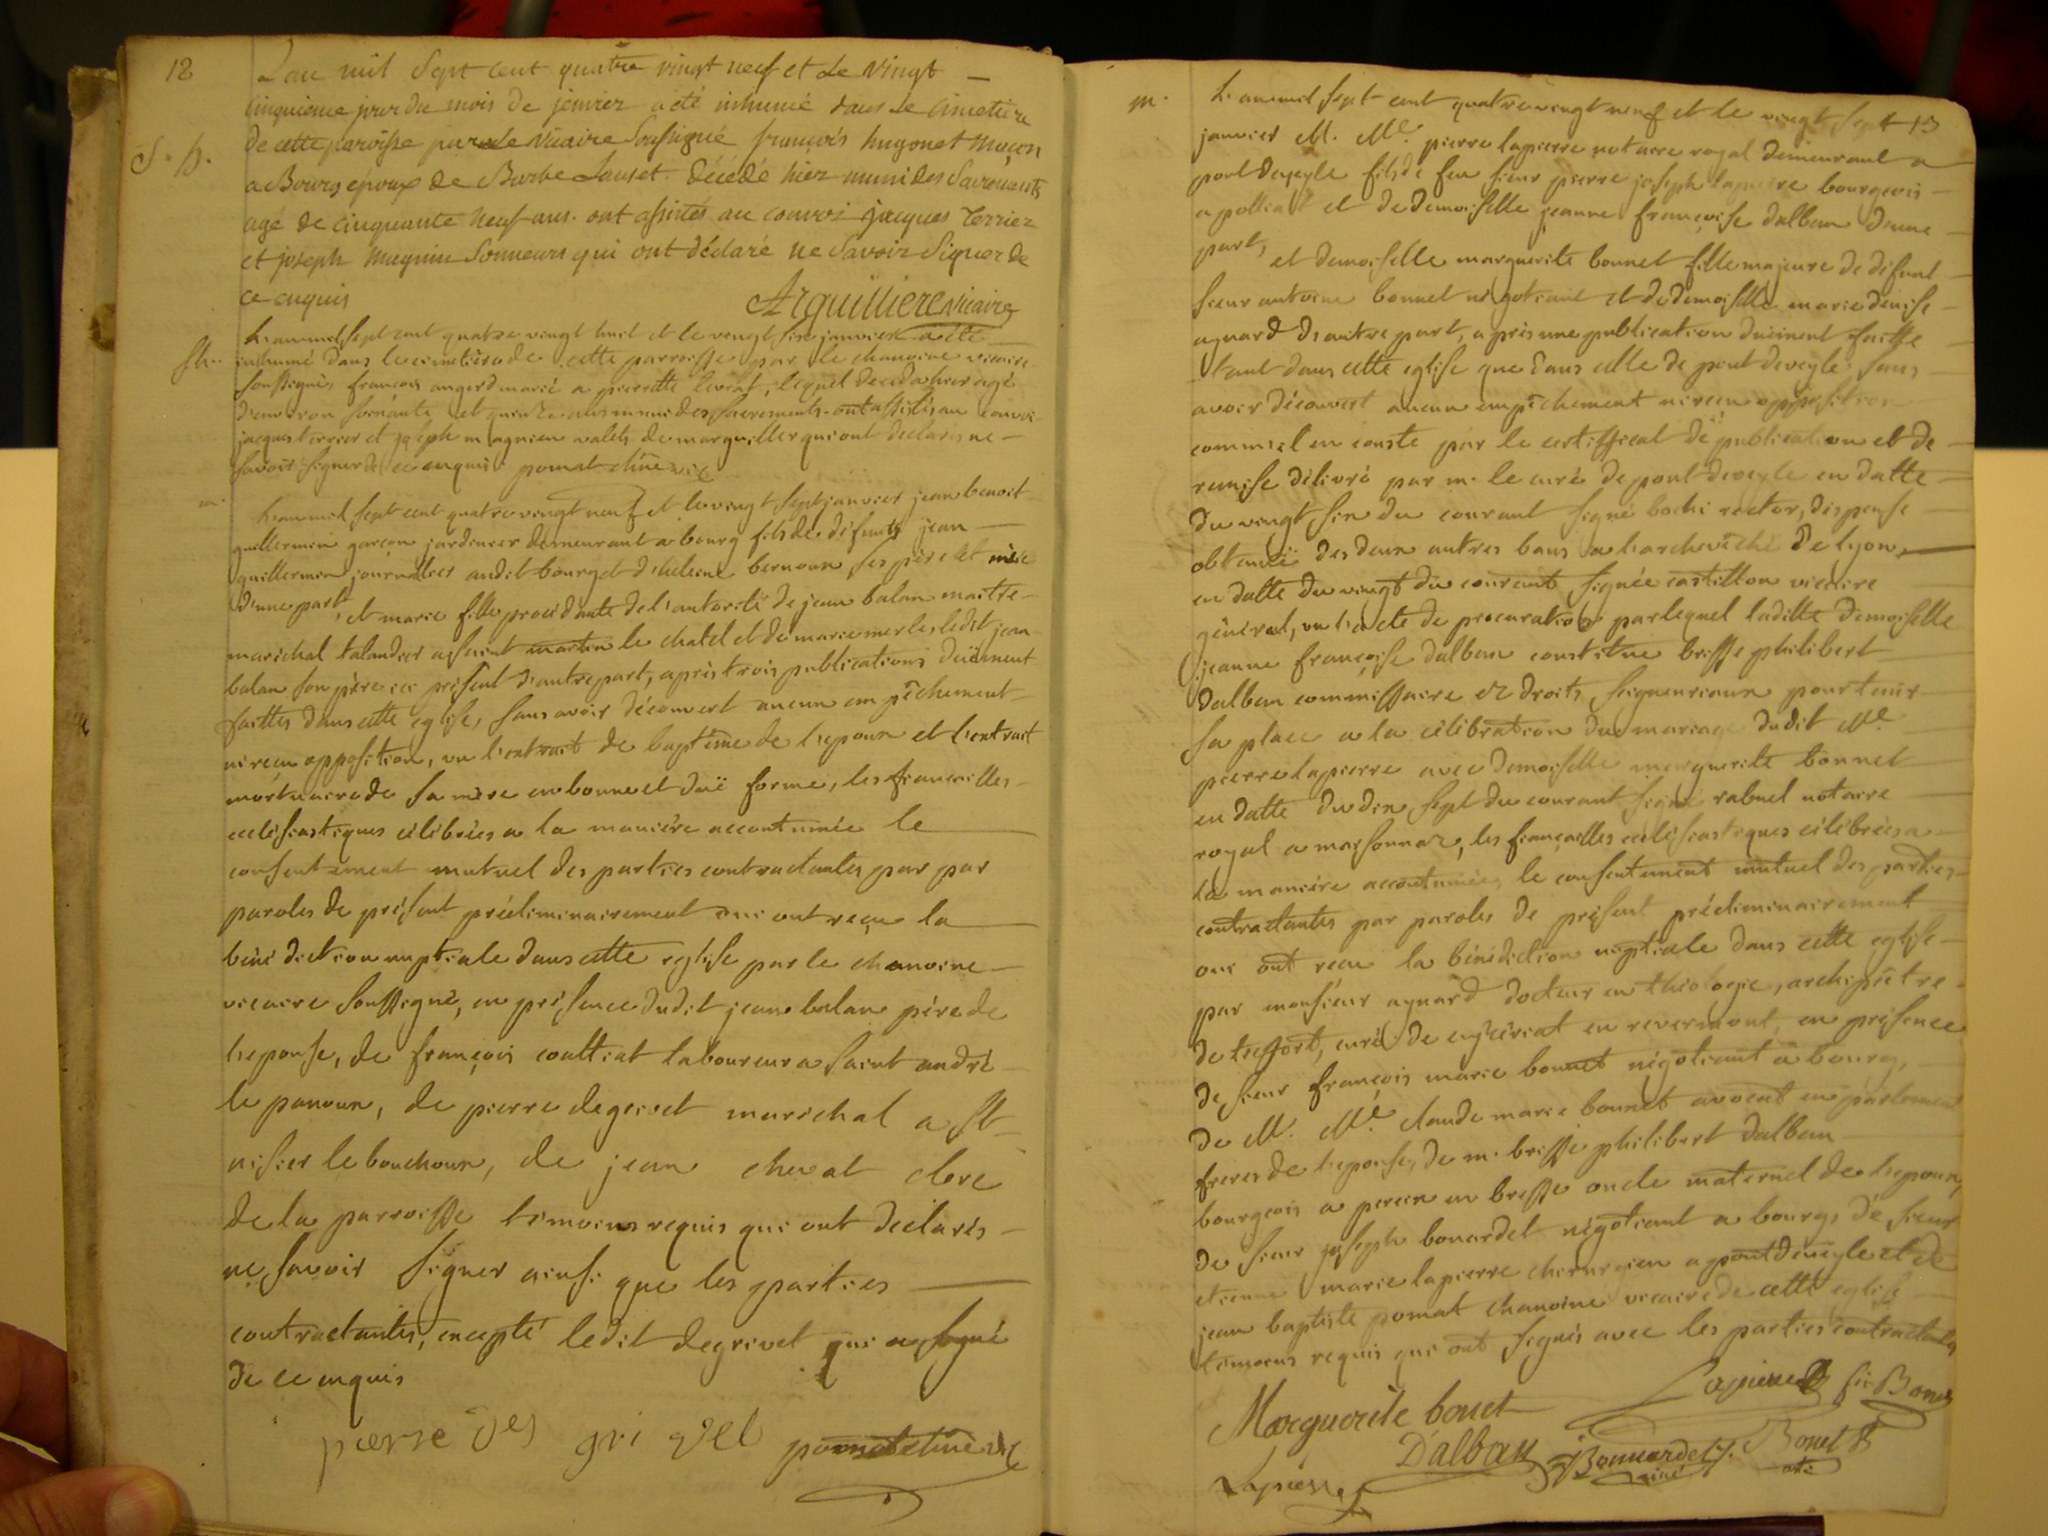 12
L'an mil Sept cent quatre vingt neuf et Le Vingt
Cinquieme jour du mois de jenvier a été inhumé dans Le Cimetiere
S. h. de cette paroisse par Le Vicaire Soussigné françois hugonet Maçon
a Bourg epoux de Barbe Lauset. Décédé hier muni des Sacrements
agé de Cinquante Neuf ans. ont assistés au convoi jacques Terrier
et joseph Magnin Sonneurs qui ont déclaré ne Savoir Signer de
ce enquis
Arguilliere vicaire
L'an mil sept cent quatre vingt huit et le vingt six janvier a été
inhumé dans le cimetiere de cette parroisse par le chanoine vicaire
soussignés françois marié a pierrette lequel deceda hier agé
d'environ soixante et quinze ans muni des sacrements. ont assistés au convoi
jacques terrier et joseph magnien valets de marguiller qui ont declarés ne
savoir signer de ce enquis pomat chne vic
m. L'an mil sept cent quatre vingt neuf et le vingt sept janvier jean benoit
guillermin garçon jardinier demeurant a bourg fils de défunts jean
guillermin journallier audit bourg et d'helene bernoux ses père et mère
d'une part, et marie fille procédante de l'autorité de jean balan maître
maréchal talandier a saint martin le chatel et de marie merle ledit jean
balan son père ici présent d'autre part, après trois publications duëment
faittes dans cette eglise, sans avoir découvert aucun empêchement
ni reçu opposition, vu l'extrait de baptême de l'epoux et l'extrait
mortuaire de sa mère en bonne et duë forme, les fiancailles
ecclésiastiques célébrées a la manière accoutumée le
consentement mutuel des parties contractantes par par
paroles de présent préliminairement oui ont reçu la
bénédiction nuptiale dans cette eglise par le chanoine
vicaire soussigné, en présence dudit jean balan père de
l'epouse, de françois coultiat laboureur a saint andré
le panoux, de pierre degrivet maréchal a St
nisier le bouchoux, de jean cheval clerc
de la parroisse témoins requis qui ont déclarés
ne savoir signer ainsi que les parties
contractantes, excepté ledit degrivet qui a signé
de ce enquis
pierre des gri vel pomat chne vic
13
m. L'an mil sept cent quatre vingt neuf et le vingt sept
janvier M. Me. pierre lapierre notaire royal demeurant a
pont deveyle fils de feu sieur pierre joseph lapierre bourgeois
a polliat et de demoiselle jeanne françoise dalban d'une
part, et demoiselle marguerite bonnet fille majeure de défunt
sieur antoine bonnet négotiant et de demoiselle marie denise
aynard d'autre part, après une publication duëment faitte
tant dans cette eglise que dans celle de pont deveyle sans
avoir découvert aucun empêchement ni reçu opposition
comme il en conste par le certifficat de publication et de
remise délivré par m. le curé de pont deveyle en datte
du vingt six du courant signé bochi rector, dispense
obtenuë des deux autres bans a l'archevêché de lyon,
en datte du vingt du courant signée castillon vicaire
général, vu l'acte de procuration par lequel laditte demoiselle
jeanne françoise dalban constitue brisse philibert
dalban commissaire ez droits seigneuriaux pour tenir
sa place a la célébration du mariage dudit Me.
pierre lapierre avec demoiselle marguerite bonnet
en datte du dix sept du courant signé rabuel notaire
royal a marsonnaz, les fiançailles ecclésiastiques célébrées a
la manière accoutumée, le consentement mutuel des parties
contractantes par paroles de présent préliminairement
oui ont recu la bénédiction nuptiale dans cette eglise
par monsieur aynard docteur en théologie, archiprêtre
de treffort, curé de cuysiat en revermont, en présence
de sieur françois marie bonnet négotiant a bourg,
de M. Me. claude marie bonnet avocat en parlement
freres de l'epouse, de m. brisse philibert dalban
bourgeois a perex en bresse oncle maternel de l'epoux,
de sieur joseph bonardet négotiant a bourg, de sieur
etienne marie lapierre chirurgien a pont deveyle et de
jean baptiste pomat chanoine vicaire de cette eglise
témoins requis qui ont signés avec les parties contractantes
Marguerite bonet Lapierre fr. Bonet
D'alban Bonnardet aîné Bonet
Lapierre